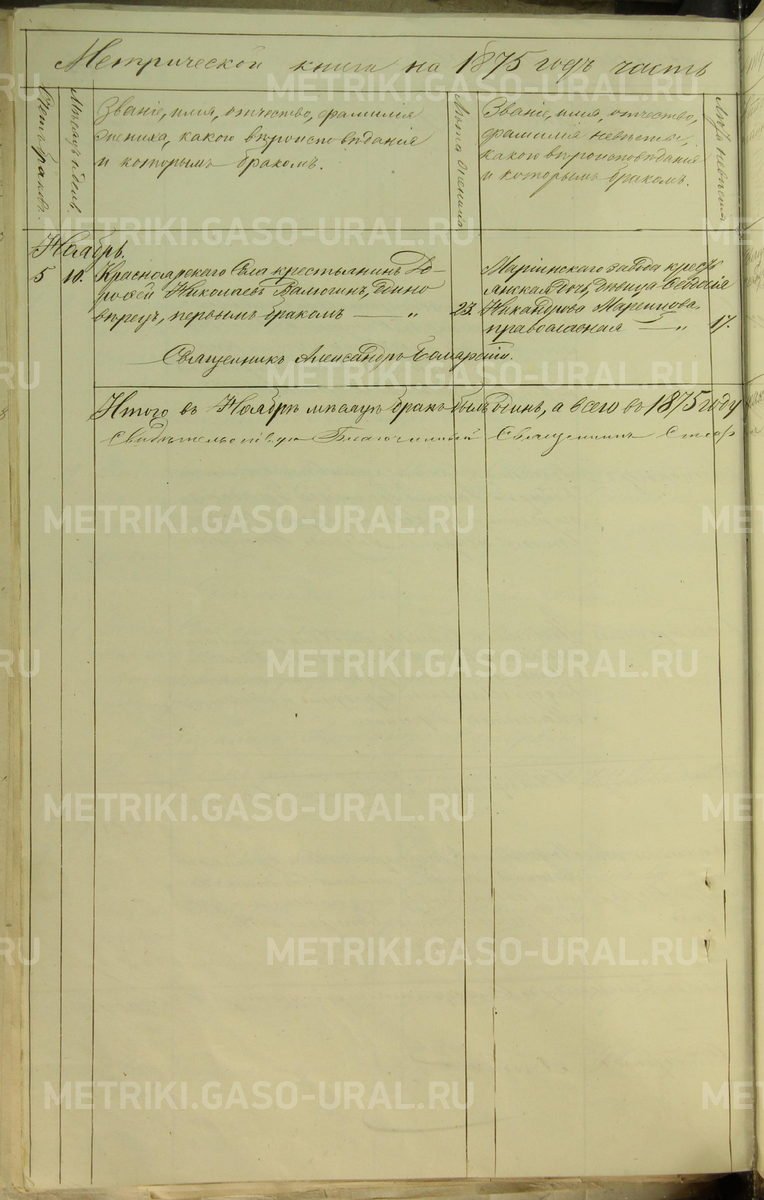 Метрической книги на 1875 годъ часть
Счетъ браковъ.
Мѣсяцъ и день.
Званіе, имя, отчество, фамилія
жениха, какого вѣроисповѣданія
и которымъ бракомъ.
Лѣта жениха
Званіе, имя, отчество,
фамилія невѣсты,
какого вѣроисповѣданія
и которымъ бракомъ.
Лѣта невѣсты
Ноябрь.
5 10. Красноярскаго Села крестьянинъ До-
рофей Николаевъ Валюгинъ,
первымъ бракомъ — „ 23.
Маріинскаго завода
дѣвица
Никандрова
православная — „ 17.
Священникъ Александръ
Итого въ Ноябрѣ мѣсяцѣ бракъ былъ одинъ, а всего въ 1875 году
Свидѣтельствую Благочинный Священникъ Стеф
METRIKI.GASO-URAL.RU